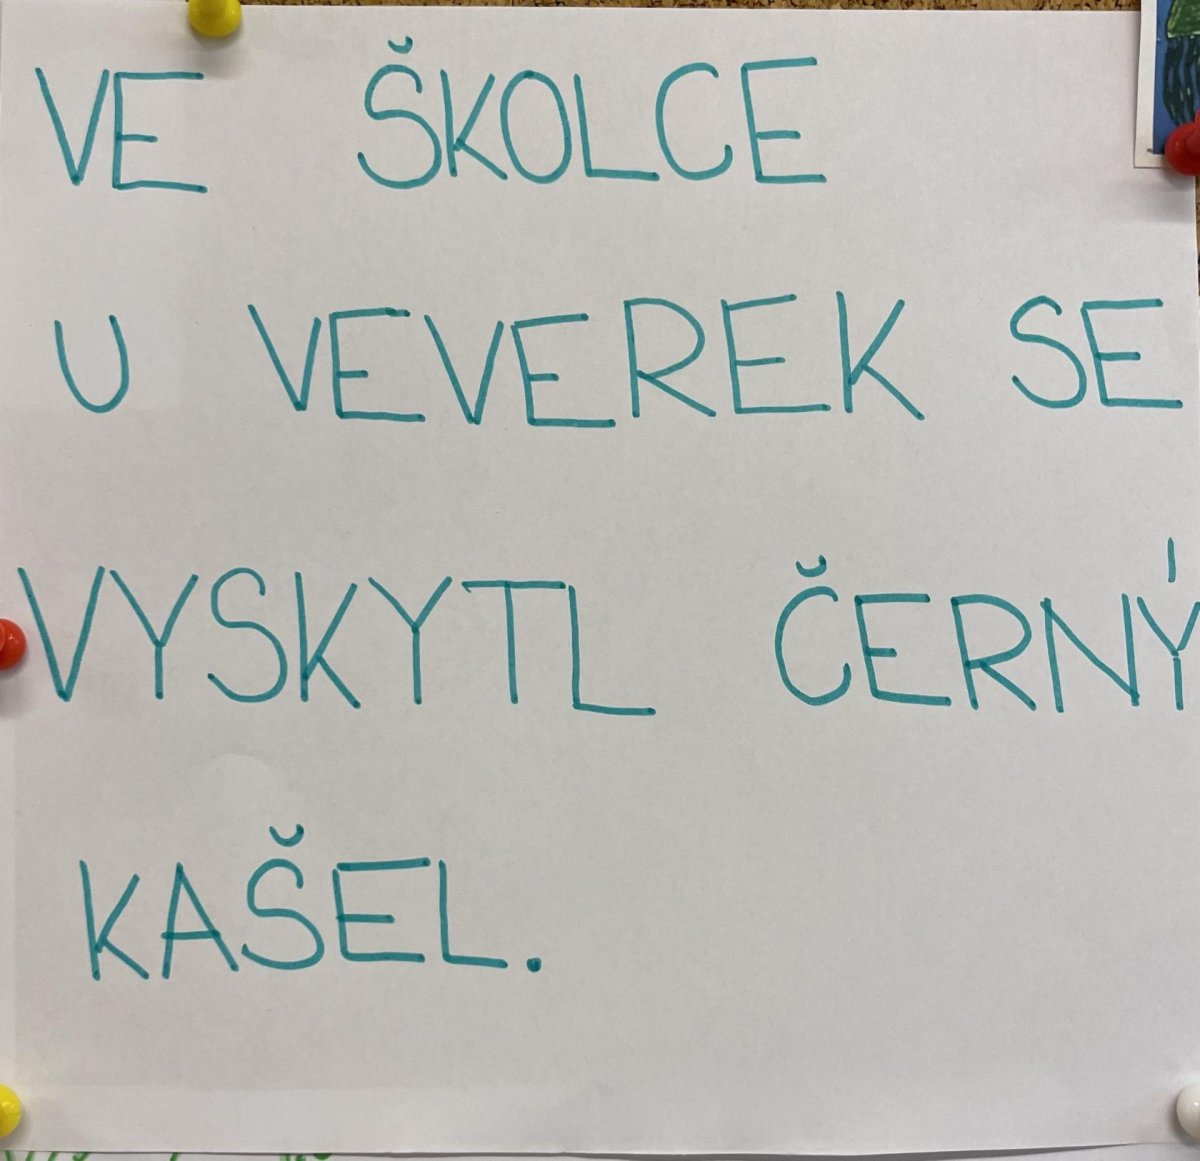 VE ŠKOLCE
U VEVEREK SE
VYSKYTL ČERNÝ
KAŠEL.